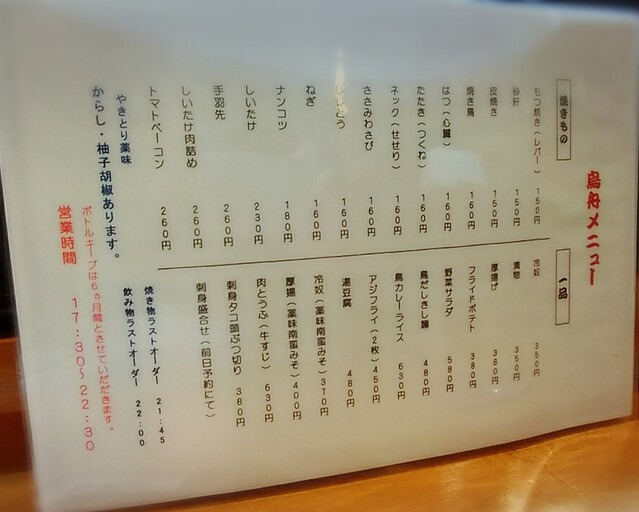 鳥舟メニュー
焼きもの
もつ焼き（レバー） 150円
砂肝 150円
皮焼き 150円
焼き鳥 160円
はつ（心臓） 160円
たたき（つくね） 160円
ネック（せせり） 160円
ささみわさび 160円
ししとう 160円
ねぎ 160円
ナンコツ 180円
しいたけ 230円
手羽先 260円
しいたけ肉詰め 260円
トマトベーコン 260円
やきとり薬味
からし・柚子胡椒あります。
一品
冷奴 350円
漬物 350円
厚揚げ 380円
フライドポテト 380円
野菜サラダ 580円
鳥だしきし麺 480円
鳥カレーライス 630円
アジフライ（2枚） 450円
湯豆腐 480円
冷奴（薬味南蛮みそ） 370円
厚揚（薬味南蛮みそ） 400円
肉とうふ（牛すじ） 630円
刺身タコ頭ぶつ切り 380円
刺身盛合せ（前日予約にて）
焼き物ラストオーダー 21:45
飲み物ラストオーダー 22:00
ボトルキープは6ヵ月間とさせていただきます。
営業時間 17:30～22:30